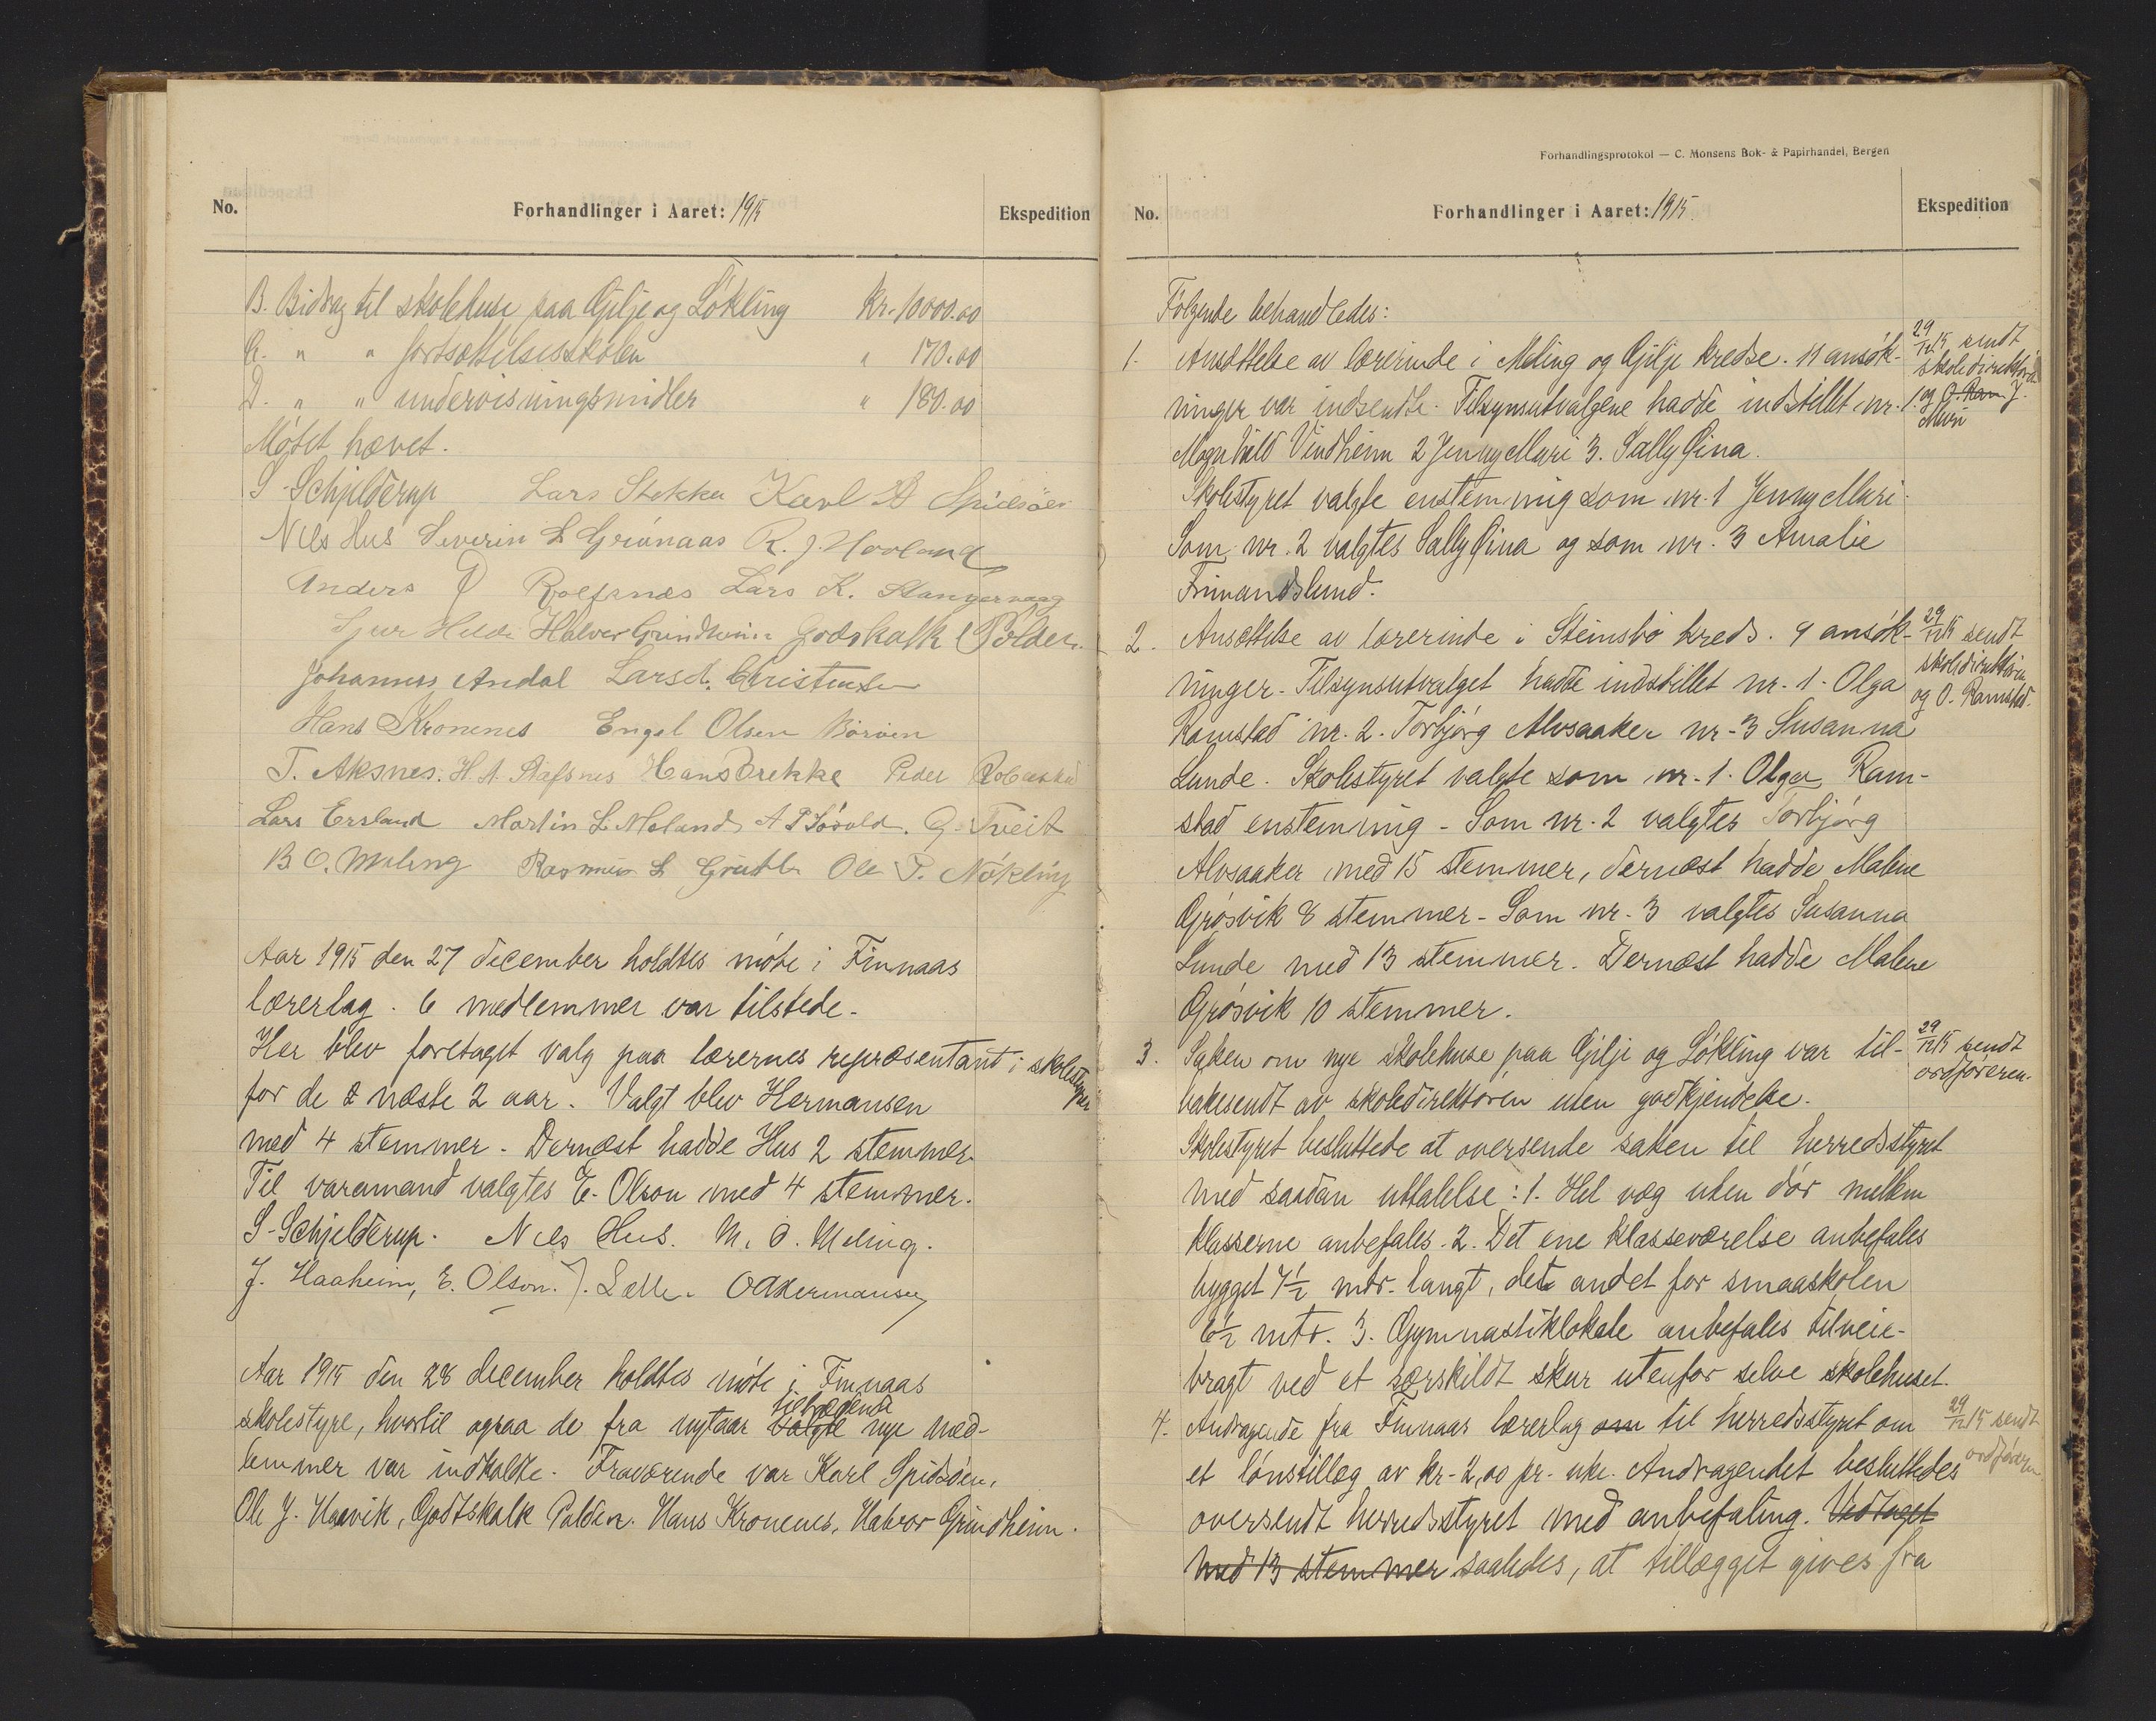 No.
Forhandlinger i Aaret: 1915
Ekspedition
B. Bidrag til skolehuse paa Gilje og Løkling Kr. 10000.00
C. " " fortsættelsesskolen " 170.00
D. " " undervisningsmidler " 180.00
Møtet hævet.
S. Schjelderup Lars Stokka Karl A Spidsøen
Nils Hus Severin L Grønaas R. J. Hovland
Anders Roefsnes Lars K. Stangervaag
Sjur Halvor Grindheim Godskalk Polden
Johannes Andal Lars Christensen
Hans Kronenes Engel Olsen Børøen
T. Aksnes. H. A. Hans Brekke Peder
Lars Ersland Martin L Meland A T Løvold. G. Tveit
B O. Meling Rasmus L Ole P. Nøkling
Aar 1915 den 27 december holdtes møte i Finnaas
lærerlag. 6 medlemmer var tilstede.
Her blev foretaget valg paa lærernes repræsentant i skolestyret
for de 2 næste 2 aar. Valgt blev Hermansen
med 4 stemmer. Dernæst hadde Hus 2 stemmer.
Til varamand valgtes E. Olson med 4 stemmer.
S. Schjelderup. Nils Hus. M. O. Meling.
J. Haaheim, E. Olson. O Hermansen
Aar 1915 den 28 december holdtes møte i Finnaas
tiltrædende
skolestyre, hvortil ogsaa de fra nytaar valgte nye med-
lemmer var indkaldte. Fraværende var Karl Spidsøen,
Ole J. Haavik, Godtskalk Polden. Hans Kronenes, Halvor Grindheim.
Forhandlingsprotokol — C. Monsens Bok- & Papirhandel, Bergen
No.
Forhandlinger i Aaret: 1915.
Ekspedition
Følgende behandledes:
1. Ansættelse av lærerinde i Meling og Gilje kredse. 11 ansøk-
29/12 15 sendt
skoledirektøren
ninger var indsendte. Tilsynsutvalgene hadde indstillet nr. 1.
og O. Ram J.
Mæri
Magnhild Vindheim 2 Jenny Mæri 3. Sally Gina.
Skolestyret valgte enstemmig som nr. 1 Jenny Mæri.
Som nr. 2 valgtes Sally Gina og som nr. 3 Amalie
Finnandslund.
2. Ansættelse av lærerinde i Steinsbø kreds. 9 ansøk-
29/12 15 sendt
skoledirektøren
ninger. Tilsynsutvalget hadde indstillet nr. 1. Olga
og O. Ramstad.
Ramstad nr. 2. Torbjørg Alvsaaker nr. 3 Susanna
Lunde. Skolestyret valgte som nr. 1. Olga Ram-
stad enstemmig. Som nr. 2 valgtes Torbjørg
Alvsaaker med 15 stemmer, dernæst hadde Malene
Grøsvik 8 stemmer. Som nr. 3 valgtes Susanna
Lunde med 13 stemmer. Dernæst hadde Malene
Grøsvik 10 stemmer.
3. Saken om nye skolehuse paa Gilje og Løkling var til-
29/12 15 sendt
ordføreren.
bakesendt av skoledirektøren uten godkjendelse.
Skolestyret besluttede at oversende saken til herredsstyret
med saadan uttalelse: 1. Hel væg uten dør mellem
klasserne anbefales. 2. Det ene klasseværelse anbefales
bygget 7½ mtr. langt, det andet for smaaskolen
6½ mtr. 3. Gymnastiklokale anbefales tilveie-
bragt ved et særskildt skur utenfor selve skolehuset.
4. Andragende fra Finnaas lærerlag om til herredsstyret om
29/12 15 sendt
ordføreren
et lønstillæg av kr. 2,00 pr. uke. Andragendet besluttedes
oversendt herredsstyret med anbefaling. Vedtaget
med 13 stemmer saaledes, at tillægget gives fra